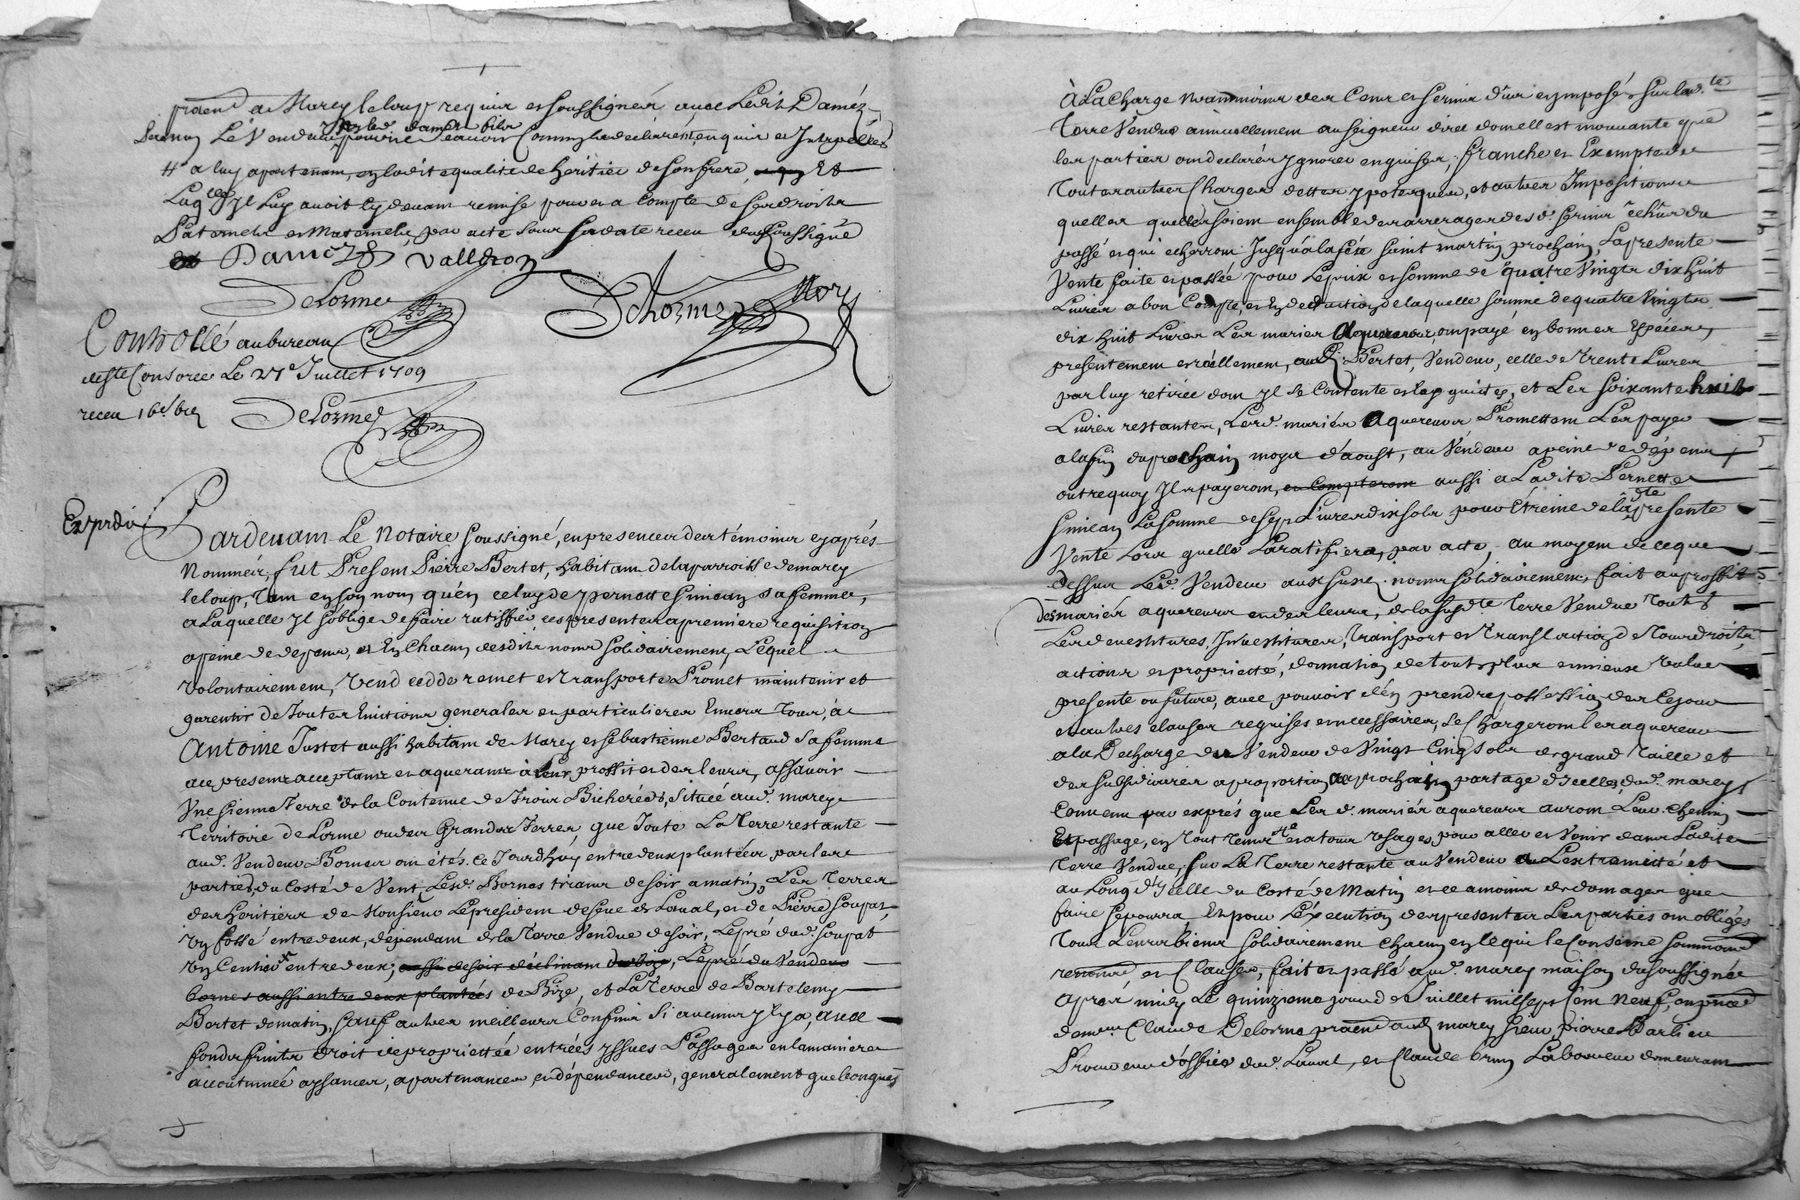 de Marcy le loup requis et soussignés avec Ledit Daméz
Le Vendeur
a luy apartenant, en ladite qualité de héritier de son frere, Et
yl Luy avoit cy devant remise pour et a Compte de ses droits
Paternels et Maternels, par acte sous sa date receu du soussigné
Daméz Valleton
DeLorme
DeLorme Nory
Controllé au bureau
Le 27e Juillet 1709
receu
DeLorme
Expedié
Pardevant Le Notaire soussigné, en presence des témoins cy aprés
Nommés, fut Present Pierre Bertet, habitant de la parroisse de marcy
le loup, Tant en son nom qu'en celuy de pernette simean sa femme,
a Laquelle yl s'oblige de faire ratiffier ces presentes a premiere requisition
a peine de depens, et En Chacun desdits noms solidairement, Lequel
volontairement, Vend cedde remet et transporte Promet maintenir et
garentir de Toutes Evictions generales et particulieres Envers Tous, à
Antoine Justet aussi habitant de Marcy et sebastienne Bertaud sa femme
ace presents acceptants et aquerants à leur proffit et des leurs, assavoir
Une sienne Terre de la Contenue de Trois Bicherées, Située aud. marcy
Territoire de Lorme ou des Grandes Terres, que Toute La Terre restante
aud. Vendeur Bornes ont étés ce Jourdhuy entre deux plantées par les
parties, du Costé de Vent, Lesd. Bornes tirants de soir a matin, Les Terres
des héritiers de Monsieur Le president de seve de Laval, et de Pierre soupat
un fossé entre deux, dépendant de la Terre Vendue de soir, Le pré dud. soupat
un Centier entre deux; aussi de soir déclinant du bize, Le pré du Vendeur
bornes aussi entre deux plantées de Bize, et La Terre de Bartelemy
Bertet de matin, sauf autres meilleurs Confins Si aucuns yl y a, avec
fonds fruits droit de proprieté entrées yssues Passages en la maniere
accoutumée aysances, apartenances et dépendances, generalement quelconques
à La Charge Neanmoins des Cens et servis d'us et imposés sur lad.te
Terre Vendue annuellement au seigneur direct dont elle est mouvante que
les parties ont declarés ygnorer enquises; franche et Exempte de
Toutes autres Charges dettes ypoteques, et autres Impositions
quelles quelles soient ensemble des arrerages desd. servis échus du
passé et qui écherront Jusqu'à la fete saint martin prochain La presente
Vente faite et passée pour Le prix et somme de quatre Vingts dix huit
Livres a bon Compte, et En deduction de laquelle somme de quatre Vingts
dix huit Livres Les mariés Aquereurs, ont payé en bonnes Especes
presentement et réellement, aud. Bertet, Vendeur, celle de Trente Livres
par luy retirée dont yl Se Contente et Les quitte, et Les soixante huit
Livres restantes, Lesd. mariés Aquereurs Promettent Les payer
a la fin du prochain moys d'aoust, au Vendeur a peine de dépens
outre quoy yls payeront, en Compteront aussi a Ladite Pernette
simean La somme de sept Livres dix sols pour étreine de la presente
Vente Lors quelle La ratifiera, par acte, au moyen de ce que
dessus Led. Vendeur auxsusd. noms solidairement, fait au proffit
desd. mariés aquereurs et des leurs, de la susd.te Terre Vendue Toutes
Les devestitures, Investitures, Transport et Translaction de Tous droits,
actions et proprieté, donation de tout plus et mieux Value
presente ou future, avec pouvoir d'en prendre possession des ce jour
et autres clauses requises et necessaires, Se Chargeront les aquereurs
a la Decharge du Vendeur de Vingt Cinq sols de grand Taille et
des subsidiaires a proportion au prochain partage d'ycelles dud. marcy
Convenu par exprés que Les d. mariés aquereurs auront Leur Chemin
Et passage, en Tout Tems et a tous usages, pour aller et Venir dans Ladite
Terre Vendue, sur La Terre restante au Vendeur a L'extremité et
au Long d'ycelle du Costé de Matin et ce a moins de domage que
faire se pourra Et pour L'éxecution des presentes Les parties ont obligés
Tous Leurs biens solidairement chacun en ce qui le Conserne
et Clauses, fait et passé aud. marcy maison du soussigné
aprés midy Le quinzieme jour de Juillet mil sept Cent Neuf, en presence
de Claude Delorme praticien aud. marcy sieur pierre Barlieu
Procureur d'office dud. Laval, et Claude brun Laboureur demeurant